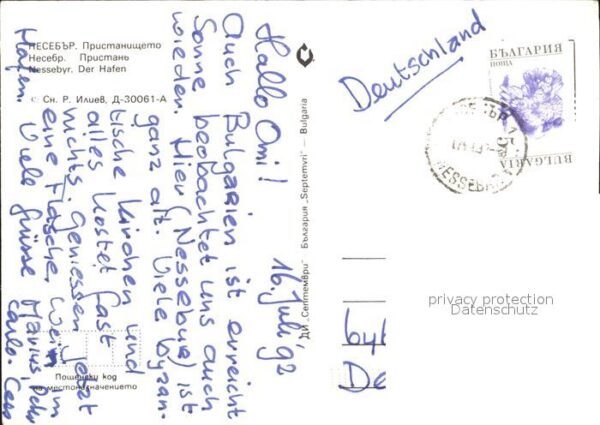 НЕСЕБЪР. Пристанището
Несебр. Пристань
Nessebyr. Der Hafen
Сн. Р. Илиев, Д-30061-А
ДИ „Септември" — България „Septemvri" — Bulgaria
Hallo Omi! 16. Juli '92
Auch Bulgarien ist erreicht
Sonne beobachtet uns auch
wieder. Hier (Nessebur) ist
ganz alt. Viele byzan-
tische Kirchen und
alles kostet fast
nichts. Geniessen jetzt
eine Flasche Wein im
Hafen.
Viele Grüsse Marius,
Carlo.
Deutschland
БЪЛГАРИЯ
ПОЩА
BULGARIA
NESSEBAR
privacy protection
Datenschutz
De
Пощенски код
на местоназначението